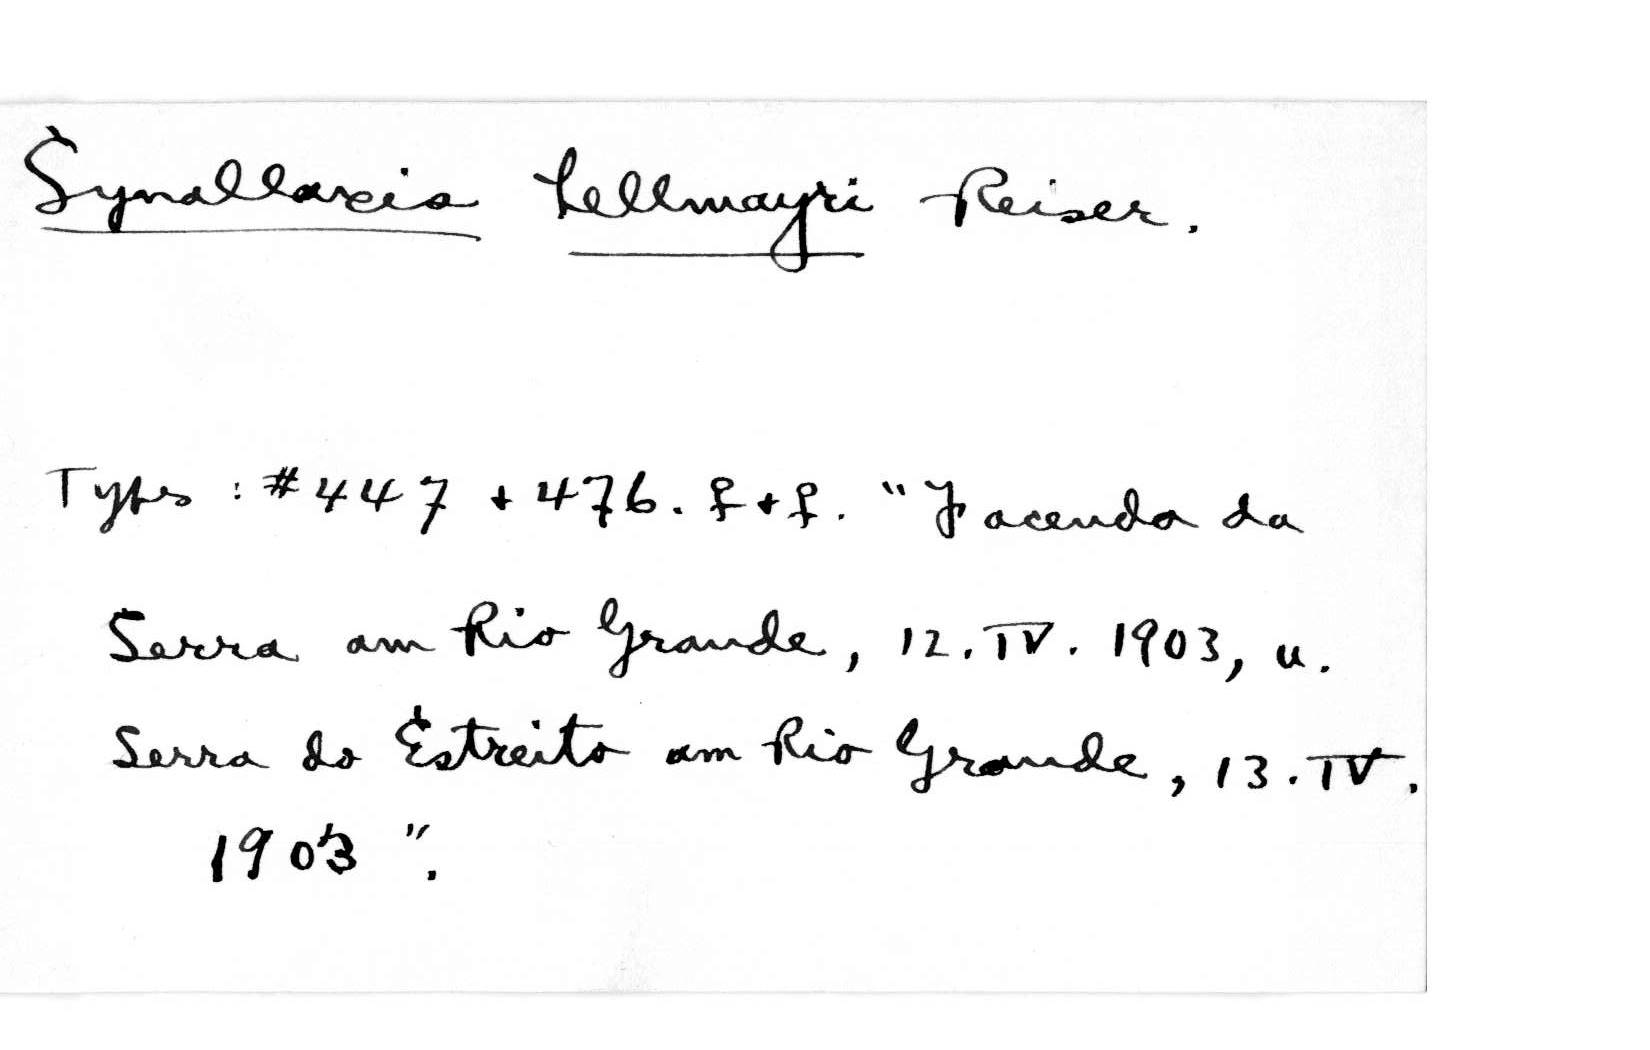 Synallaxis hellmayri Reiser.
Types : #447 + 476. ♀+♀. "Facenda da
Serra am Rio Grande, 12. IV. 1903, u.
Serra do Estreito am Rio Grande, 13. IV.
1903".